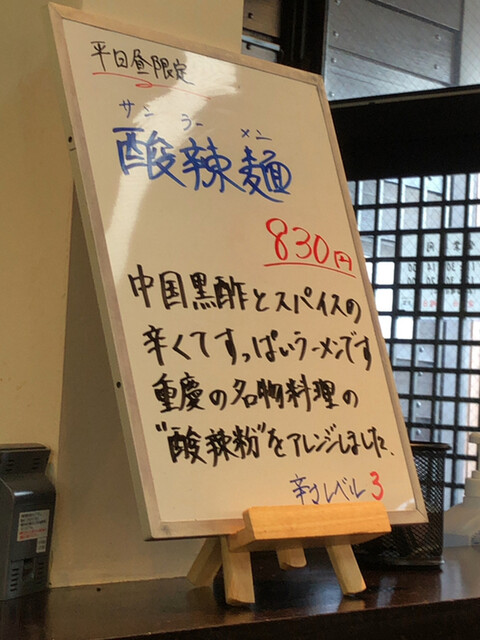 平日昼限定
サンラーメン
酸辣麺
830円
中国黒酢とスパイスの
辛くてすっぱいラーメンです
重慶の名物料理の
"酸辣粉"をアレンジしました、
辛さレベル3